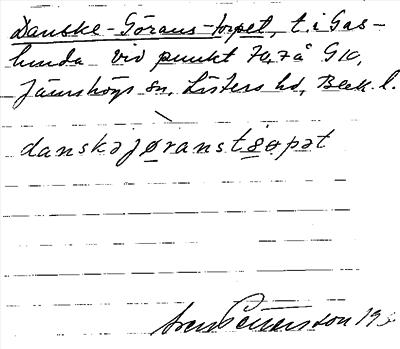 Danske-Görans-torpet, t. i Gas-
lunda vid punkt 70,7 å GK,
Jämshögs sn, Listers hd, Blek. l.
danskajøranstȯrpat
Sven Petersson 193